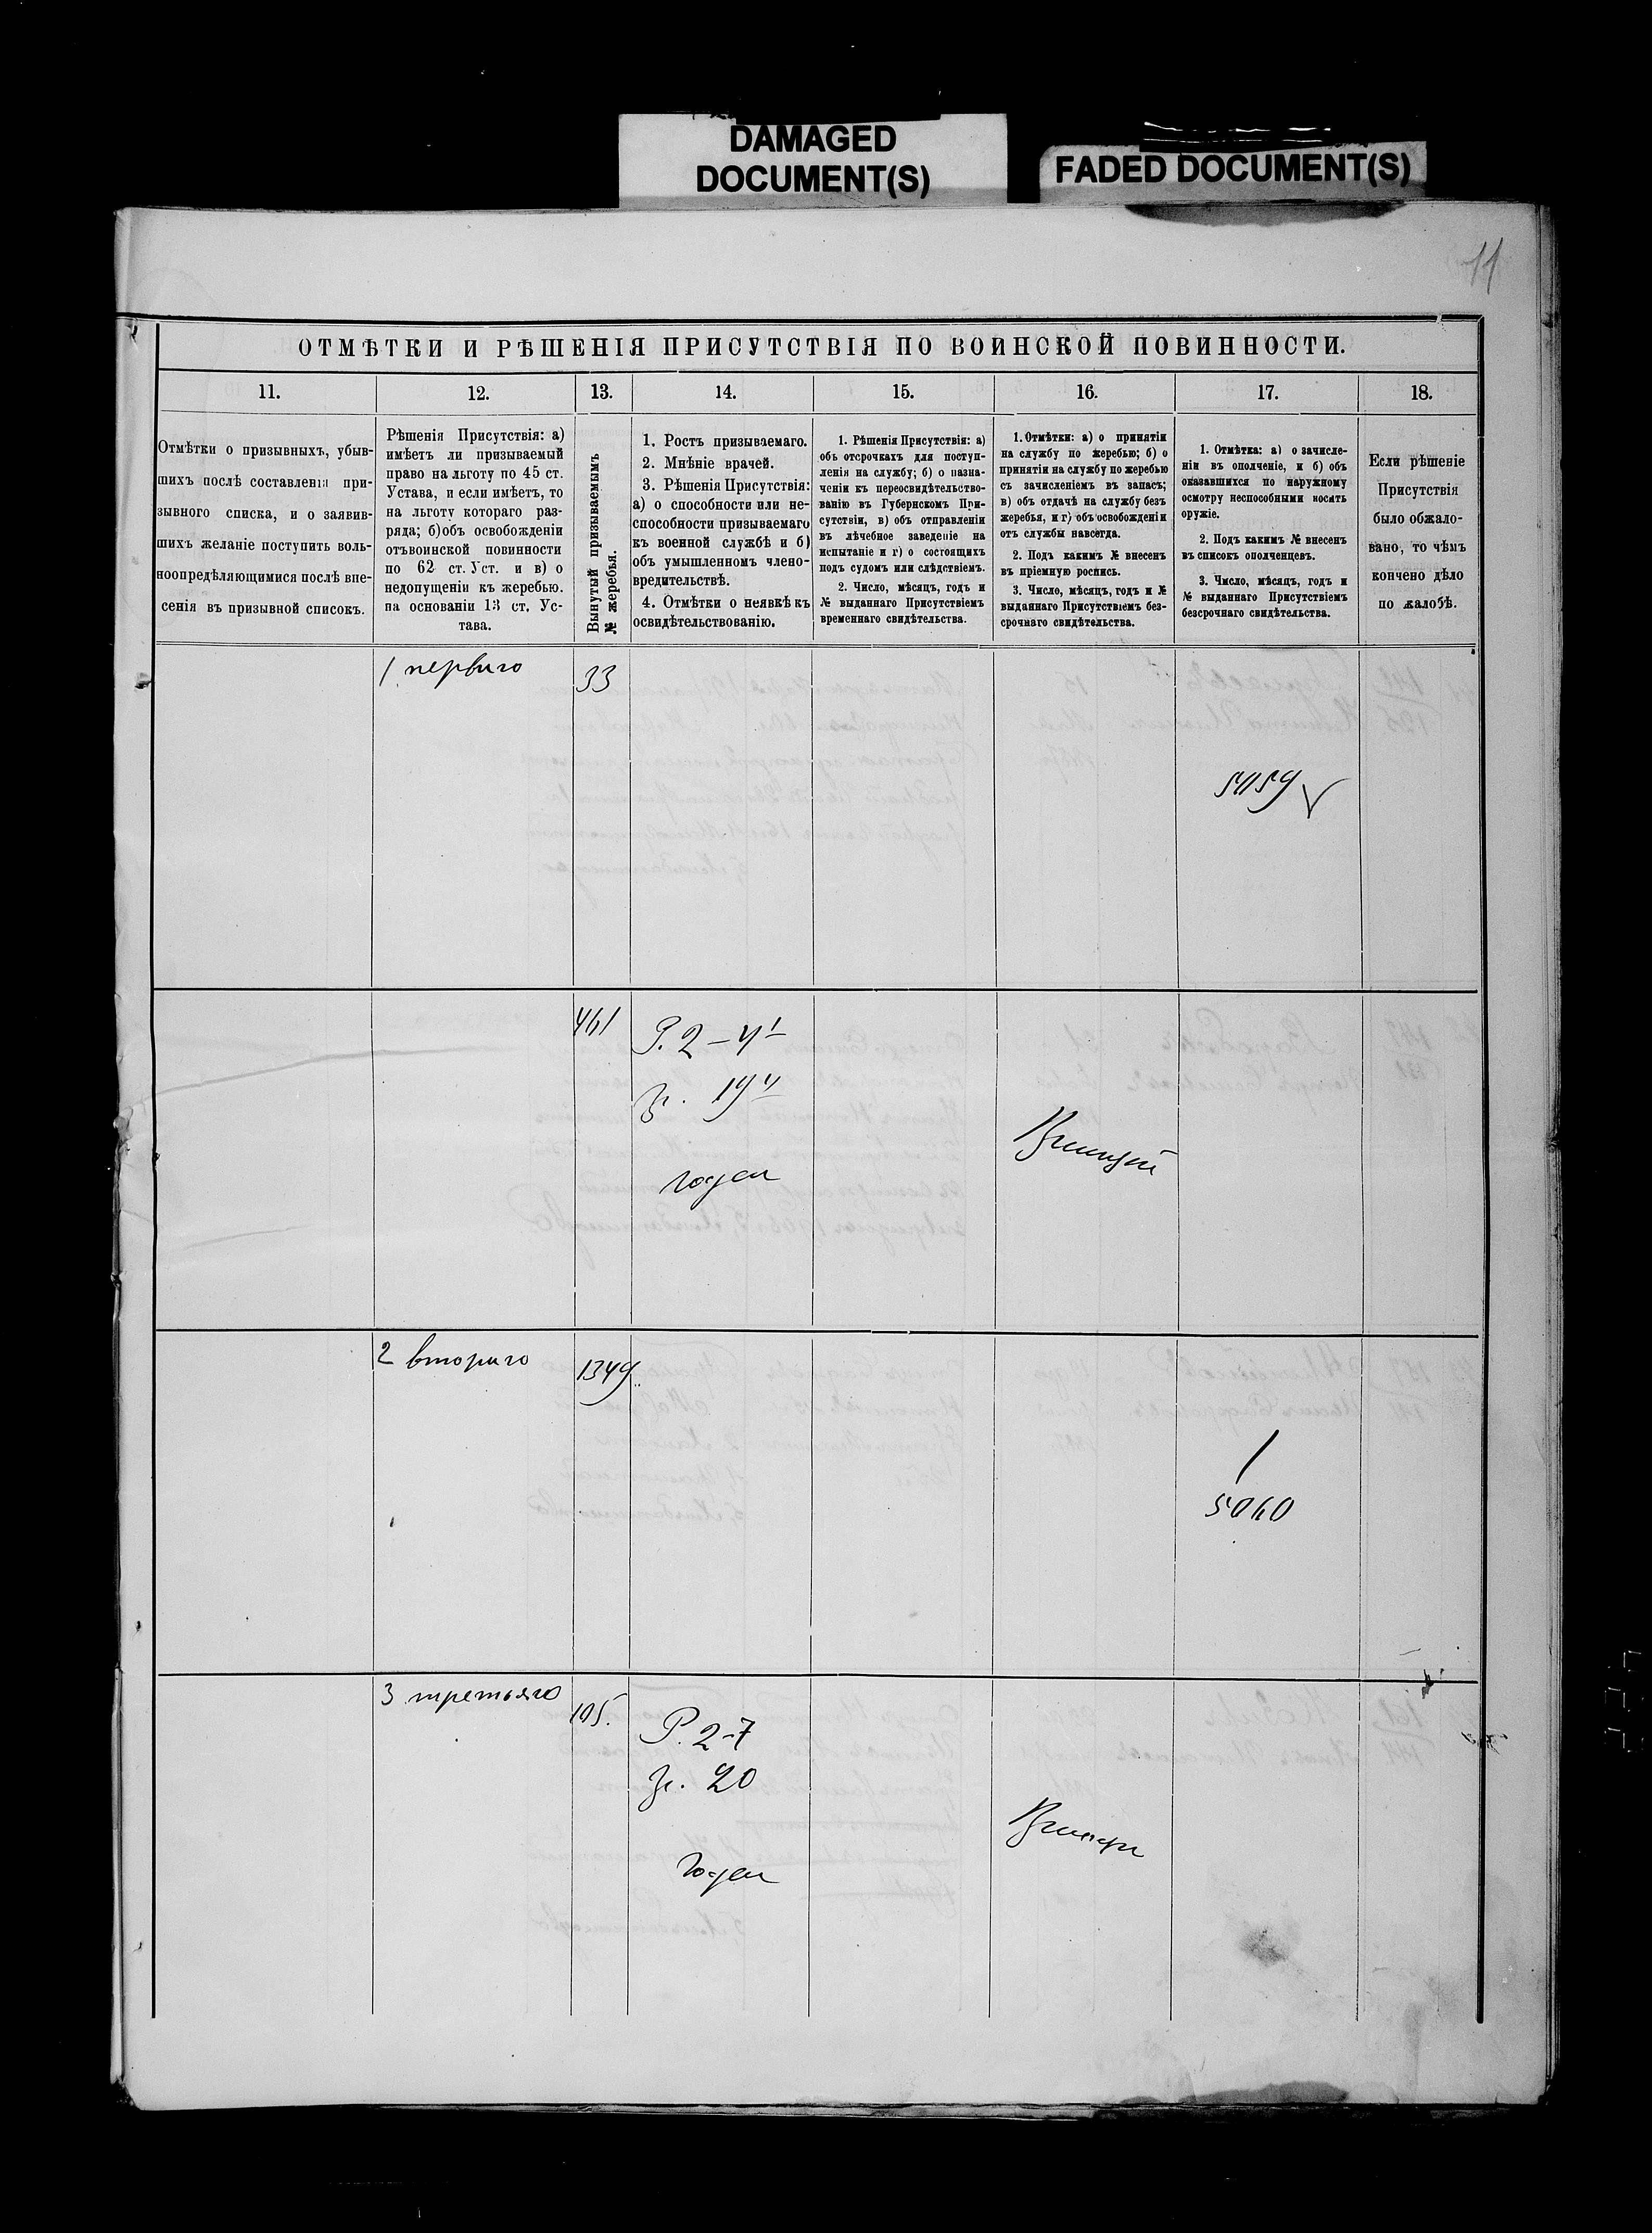 DAMAGED
DOCUMENT(S)
FADED DOCUMENT(S)
11
ОТМѢТКИ И РѢШЕНІЯ ПРИСУТСТВІЯ ПО ВОИНСКОЙ ПОВИННОСТИ.
11.
12.
13.
14.
15.
16.
17.
18.
Отмѣтки о призывныхъ, убыв-
шихъ послѣ составленія при-
зывного списка, и о заявив-
шихъ желаніе поступить воль-
ноопредѣляющимися послѣ вне-
сенія въ призывной списокъ.
Рѣшенія Присутствія: а)
имѣетъ ли призываемый
право на льготу по 45 ст.
Устава, и если имѣетъ, то
на льготу котораго раз-
ряда; б) объ освобожденіи
отъ воинской повинности
по 62 ст. Уст. и в) о
недопущеніи къ жеребью.
на основаніи 13 ст. Ус-
тава.
Вынутый призываемымъ
№ жеребья.
1. Ростъ призываемаго.
2. Мнѣніе врачей.
3. Рѣшенія Присутствія:
а) о способности или не-
способности призываемаго
къ военной службѣ и б)
объ умышленномъ члено-
вредительствѣ.
4. Отмѣтки о неявкѣ къ
освидѣтельствованію.
1. Рѣшенія Присутствія: а)
объ отсрочкахъ для поступ-
ленія на службу; б) о назна-
ченіи къ переосвидѣтельство-
ванію въ Губернскомъ При-
сутствіи, в) объ отправленіи
въ лѣчебное заведеніе на
испытаніе и г) о состоящихъ
подъ судомъ или слѣдствіемъ.
2. Число, мѣсяцъ, годъ и
№ выданнаго Присутствіемъ
временнаго свидѣтельства.
1. Отмѣтки: а) о принятіи
на службу по жеребью; б) о
принятіи на службу по жеребью
съ зачисленіемъ въ запасъ;
в) объ отдачѣ на службу безъ
жеребья, и г) объ освобожденіи
отъ службы навсегда.
2. Подъ какимъ № внесенъ
въ пріемную роспись.
3. Число, мѣсяцъ, годъ и №
выданнаго Присутствіемъ без-
срочнаго свидѣтельства.
1. Отмѣтка: а) о зачисле-
ніи въ ополченіе, и б) объ
оказавшихся по наружному
осмотру неспособными носить
оружіе.
2. Подъ какимъ № внесенъ
въ списокъ ополченцевъ.
3. Число, мѣсяцъ, годъ и
№ выданнаго Присутствіемъ
безсрочнаго свидѣтельства.
Если рѣшеніе
Присутствія
было обжало-
вано, то чѣмъ
кончено дѣло
по жалобѣ.
1 перваго
33
461
Р. 2 – 4
годен
2 втораго
1349
5060
3 третьяго
105.
Р. 2–7
20
годен